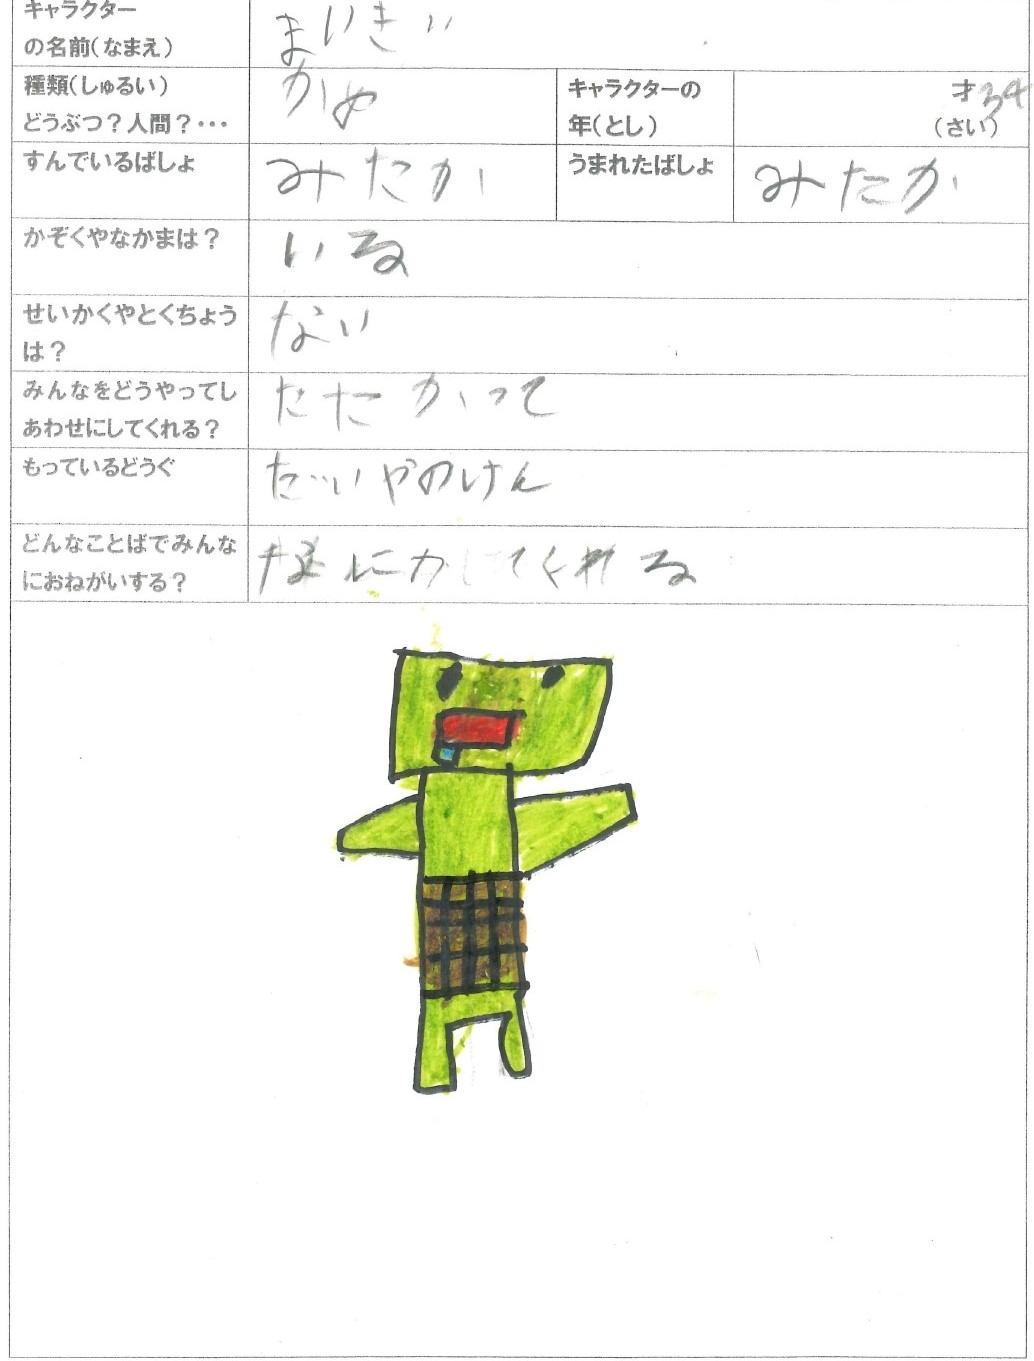 キャラクター
の名前(なまえ)
まいきい
種類(しゅるい)
どうぶつ?人間?・・・
かめ
キャラクターの
年(とし)
才34
(さい)
すんでいるばしょ
みたか
うまれたばしょ
みたか
かぞくやなかまは?
いる
せいかくやとくちょう
は?
ない
みんなをどうやってし
あわせにしてくれる?
たたかって
もっているどうぐ
だいやのけん
どんなことばでみんな
におねがいする?
なにかしてくれる